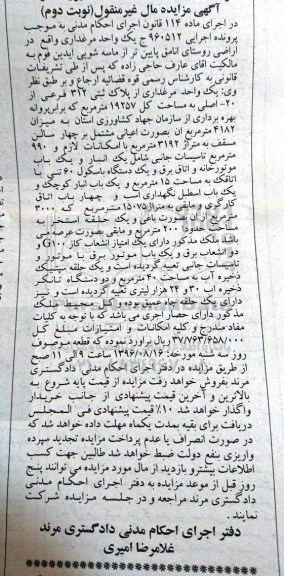 آگهی مزایده مال غیرمنقول(نوبت دوم)
در اجرای ماده ۱۱۴ قانون اجرای احکام مدنی به موجب
پرونده اجرایی ۹۶۰۵۱۲ ج یک واحد مرغداری واقع در
اراضی روستای انامق پایین تر از ماسه شویی آیدین فوم به
مالکیت آقای عارف حاجی زاده که پس از طی تشریفات
قانونی به کارشناس رسمی قوه قضائیه ارجاع و بر طبق نظر
وی: یک واحد مرغداری از پلاک ثبتی ۳۱۲ فرعی از
۲۰- اصلی به مساحت کل ۱۹۲۵۷ مترمربع که برابر پروانه
بهره برداری از سازمان جهاد کشاورزی استان به میزان
۴۱۸۲ مترمربع آن بصورت اعیانی مشتمل بر چهار سالن
مسقف به متراژ ۳۱۹۲ مترمربع با امکانات لازم و ۹۹۰
مترمربع تاسیسات جانبی شامل یک انبار و یک باب
موتورخانه و اتاق برق و یک دستگاه باسکول ۶۰ تنی با
اتاقک به مساحت ۱۵ مترمربع و یک باب انبار کوچک و
یک باب اسطبل نگهداری اسب و چهار باب اتاق
کارگری و مابقی به متراژ ۱۵۰۷۵ مترمربع که ۳۰۰۰
مترمربع از آن بصورت باغی و یک حلقه استخر به
مساحت حدودا ۲۰۰ مترمربع و مابقی بصورت عرصه می
باشد ملک مذکور دارای یک امتیاز انشعاب گاز G100 و
دو انشعاب برق و یک باب موتور برق با موتور و
تاسیسات جانبی تعبیه گردیده است و یک حلقه سپتیک
ذخیره آب به مساحت ۴۰ مترمربع و دو دستگاه تانکر
ذخیره آب ۳۰ و ۲۴ هزار لیتری تعبیه گردیده است و نیز
دارای یک حلقه چاه عمیق بوده و کل محیط ملک
مذکور دارای حصار آجری می باشد که با توجه به کلیات
مفاد مندرج و کلیه امکانات و امتیازات مبلغ کل
۳۷/۷۶۳/۶۵۸/۰۰۰ ریال برآورد نموده که قطعه موصوف
روز سه شنبه مورخه: ۱۳۹۶/۰۸/۱۶ ساعت ۹ الی ۱۱ صبح
از طریق مزایده در دفتر اجرای احکام مدنی دادگستری
مرند بفروش خواهد رفت مزایده از قیمت پایه شروع به
بالاترین و آخرین قیمت پیشنهادی از جانب خریدار
واگذار خواهد شد ۱۰٪ قیمت پیشنهادی فی المجلس
دریافت برای بقیه بمدت یکماه مهلت داده خواهد شد که
در صورت انصراف یا عدم پرداخت مزایده تجدید سپرده
واریزی بنفع دولت ضبط خواهد شد طالبین جهت کسب
اطلاعات بیشترو بازدید از مال مورد مزایده می توانند پنج
روز قبل از موعد مزایده به دفتر اجرای احکام مدنی
دادگستری مرند مراجعه و در جلسه مزایده شرکت
نمایند.
دفتر اجرای احکام مدنی دادگستری مرند
غلامرضا امیری